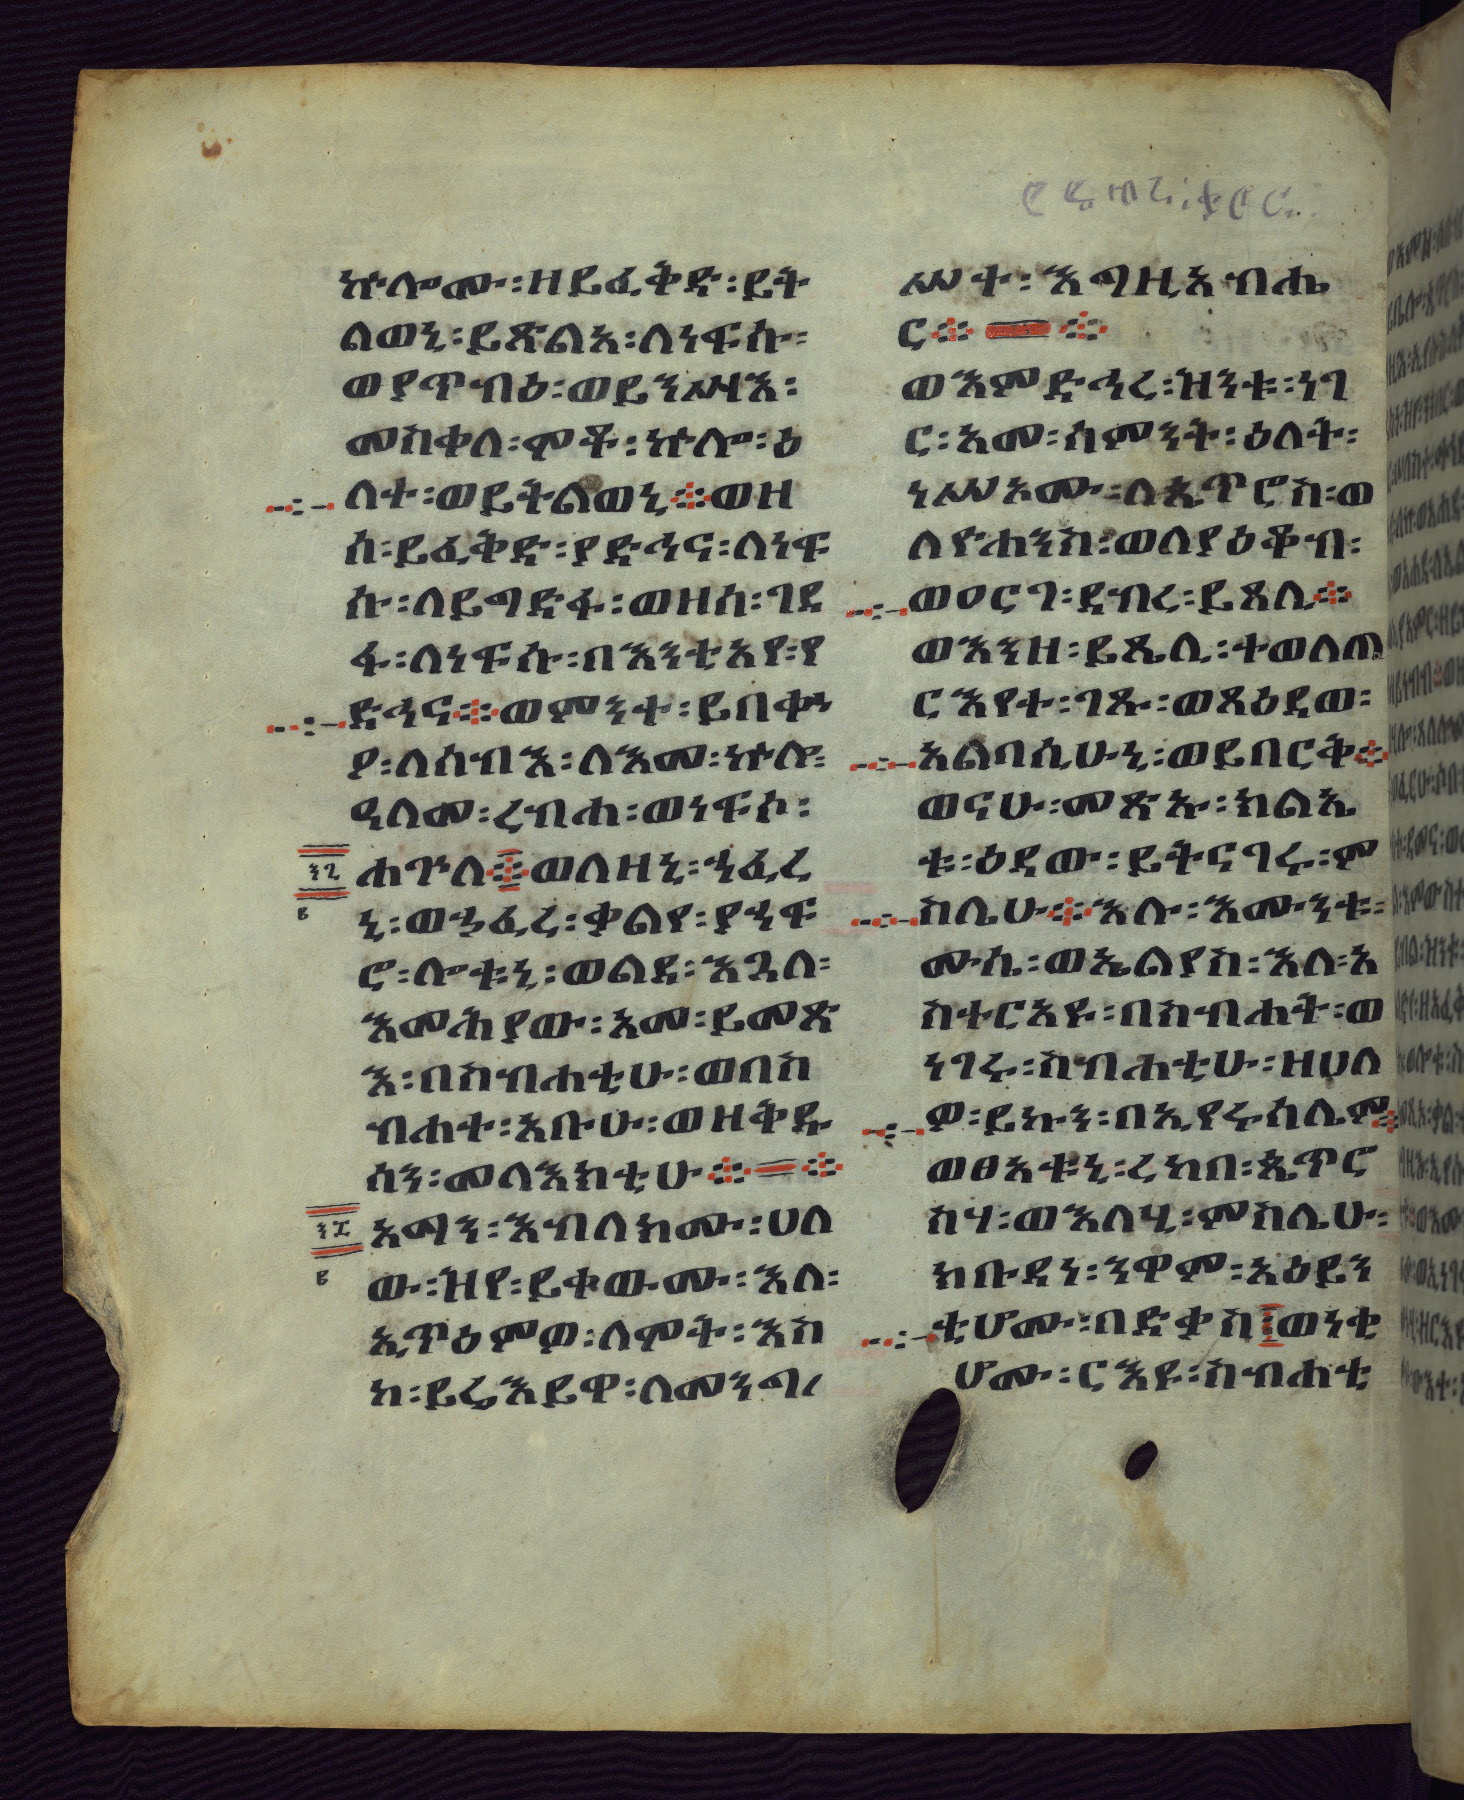 ኵሎሙ፡ዘይፈቅድ፡ይት
ልወኒ፡ይጽልእ፡ለነፍሱ፡
ወያጥብዕ፡ወይንሣእ፡
መስቀለ፡ሞቱ፡ኵሎ፡ዕ
ለተ፡ወይትልወኒ፨ወዘ
ሰ፡ይፈቅድ፡ያድኅና፡ለነፍ
ሱ፡ለይግድፋ፡ወዘሰ፡ገደ
ፋ፡ለነፍሱ፡በእንቲአየ፡የ
ድኅና፨ወምንተ፡ይበቍ
ዖ፡ለሰብእ፡ለእመ፡ኵሎ፡
ዓለመ፡ረብሐ፡ወነፍሶ፡
ሐጕለ፨ወለዘኒ፡ኀፈረ
ኒ፡ወኀፈረ፡ቃልየ፡ያኀፍ
ሮ፡ሎቱኒ፡ወልደ፡እጓለ፡
እመሕያው፡አመ፡ይመጽ
እ፡በስብሐቲሁ፡ወበስ
ብሐተ፡አቡሁ፡ወዘቅዱ
ሳን፡መላእክቲሁ፨፨
አማን፡እብለክሙ፡ሀለ
ው፡ዝየ፡ይቀውሙ፡እለ፡
ኢጥዕምዎ፡ለሞት፡እስ
ከ፡ይሬእይዋ፡ለመንግ
ሥተ፡እግዚአብሔ
ር፨፨
ወእምድኅረ፡ዝንቱ፡ነገ
ር፡አመ፡ሰምንት፡ዕለት፡
ነሥኦሙ፡ለጴጥሮስ፡ወ
ለዮሐንስ፡ወለያዕቆብ፡
ወዐርገ፡ደብረ፡ይጸሊ፨
ወእንዘ፡ይጼሊ፡ተወለጠ
ርእየተ፡ገጹ፡ወጸዕደወ፡
አልባሲሁኒ፡ወይበርቅ፨
ወናሁ፡መጽኡ፡ክልኤ
ቱ፡ዕደው፡ይትናገሩ፡ም
ስሌሁ፨እሉ፡እሙንቱ፡
ሙሴ፡ወኤልያስ፡እለ፡አ
ስተርአዩ፡በስብሐት፡ወ
ነገሩ፡ስብሐቲሁ፡ዘሀለ
ዎ፡ይኩን፡በኢየሩሳሌም፨
ወፀአቱኒ፡ረከበ፡ጴጥሮ
ስሃ፡ወእለሂ፡ምስሌሁ፡
ከቡደነ፡ንዋም፡አዕይን
ቲሆሙ፡በድቃስ፨ወነቂ
ሆሙ፡ርእዩ፡ስብሐቲ